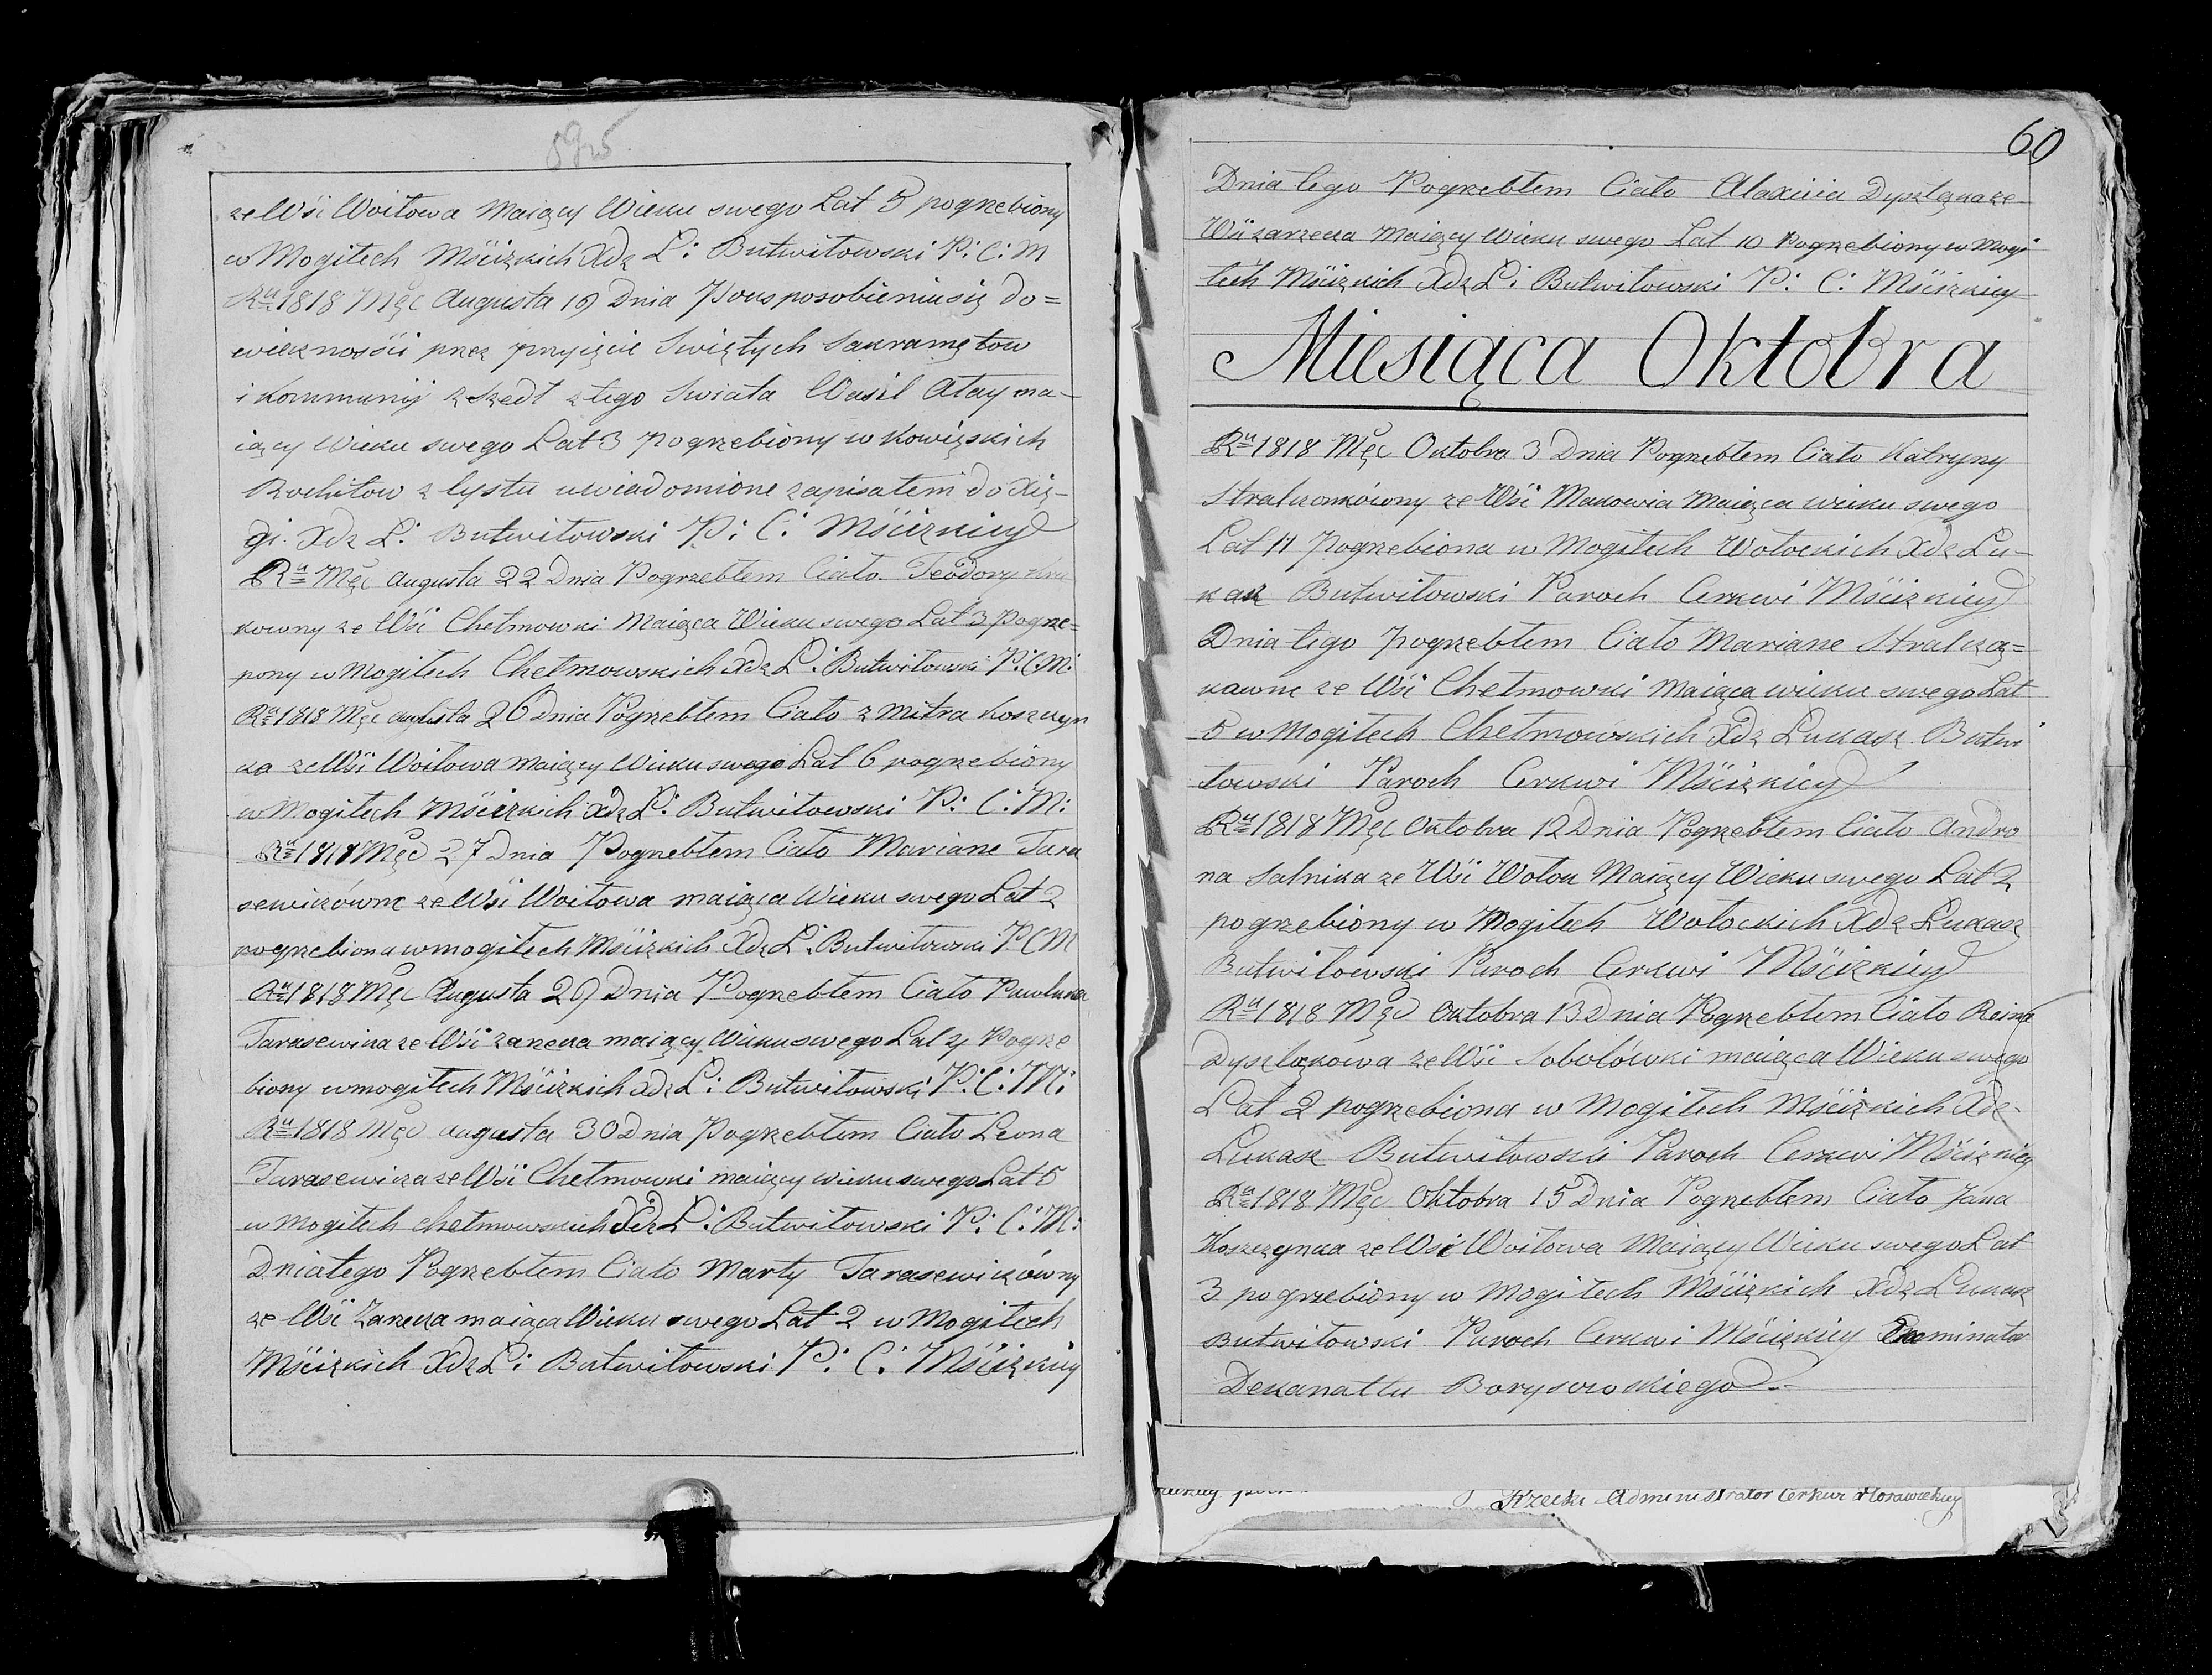 ze Wsi Woitowa Maiący Wieku swego Lat 5 pogrzebiony
w Mogiłech Mścizkich Xdz Ł: Butwiłowski P: C: M
Ru 1818 Męc Augusta 19 Dnia Pousposobieniu się do=
wiecznosci prez przyięcie Swiętych Sakramętow
i Kommunij zszedł z tego Swiata Wasil Atay ma-
iący Wieku swego Lat 3 pogrzebiony w Kowięskich
z lystu uwiadomione zapisałem do Xię-
gi. Xdz Ł: Butwiłowski P: C: Mścizkiey
Ru Męc Augusta 22 Dnia Pogrzebłem Ciało Teodory
kowny ze Wsi Chełmowki Maiąca Wieku swego Lat 3 Pogrze=
pony w Mogiłech Chełmowskich Xdz Ł: Butwiłowski P: C M:
Ru 1818 Męc Augusta 26 Dnia Pogrzebłem Ciało Zmitra Koszczyn
ka ze Wsi Woitowa Maiący Wieku swego Lat 6 pogrzebiony
w Mogiłech Mścizkich Xdz Ł: Butwiłowski P: C: M:
Ru 1818 Męc 27 Dnia Pogrzebłem Ciało Mariane Tara
sewiczówne ze Wsi Woitowa maiąca Wieku swego Lat 2
pogrzebiona w mogiłech Mścizkich Xdz Ł: Butwiłowski P: C M
Ru 1818 Męc Augusta 29 Dnia Pogrzebłem Ciało Pawluka
Tarasewicza ze Wsi Zarzecza maiący Wieku swego Lat 4 Pogrze
biony w mogiłech Mścizkich Xdz Ł: Butwiłowski P: C: M:
Ru 1818 Męc Augusta 30 Dnia Pogrzebłem Ciało Leona
Tarasewicza ze Wsi Chełmowki maiący Wieku swego Lat 5
w Mogiłech Chełmowskich Xdz Ł: Butwiłowski P: C: M:
Dnia tego Pogrzebłem Ciało Marty Tarasewiczówny
ze Wsi Zarzecza maiąca Wieku swego Lat 2 w Mogiłech
Mścizkich Xdz Ł: Butwiłowski P: C: Mścizkiey
60
Dnia tego Pogrzebłem Ciało Alaxieia Dyszlęka ze
Wsi Zarzecza Maiący Wieku swego Lat 10 Pogrzebiony w Mogi
łech Mścizkich Xdz Ł: Butwiłowski P: C: Mścizkiey
Miesiąca Oktobra
Ru 1818 Męc Oktobra 3 Dnia Pogrzebłem Ciało Katryny
Stralczonkówny ze Wsi Makowia Maiąca wieku swego
Lat 11 Pogrzebiona w Mogiłech Wołockich Xdz Łu-
kasz Butwiłowski Paroch Cerkwi Mścizkiey
Dnia tego pogrzebłem Ciało Mariane Stralczą=
kawne ze Wsi Chełmowki Maiąca wieku swego Lat
5 w Mogiłech Chełmowskich Xdz Łukasz Butwi
łowski Paroch Cerkwi Mścizkiey
Ru 1818 Męc Oktobra 12 Dnia Pogrzebłem Ciało Andro
na Salnika ze Wsi Wołok Maiący Wieku swego Lat 2
pogrzebiony w Mogiłech Wołockich Xdz Łukasz
Butwiłowski Paroch Cerkwi Mścizkiey
Ru 1818 Męc Oktobra 13 Dnia Pogrzebłem Ciało Reine
Dyszląkowa ze Wsi Sobolówki maiąca Wieku swego
Lat 2 pogrzebiona w Mogiłech Mścizkich Xdz
Łukasz Butwiłowski Paroch Cerkwi Mścizkiey
Ru 1818 Męc Oktobra 15 Dnia Pogrzebłem Ciało Jana
Koszczynka ze Wsi Woitowa Maiący Wieku swego Lat
3 pogrzebiony w Mogiłech Mścizkich Xdz Łukasz
Butwiłowski Paroch Cerkwi Mścizkiey Exominator
Dekanattu Borysowskiego
Rzecki Administrator Cerkwi